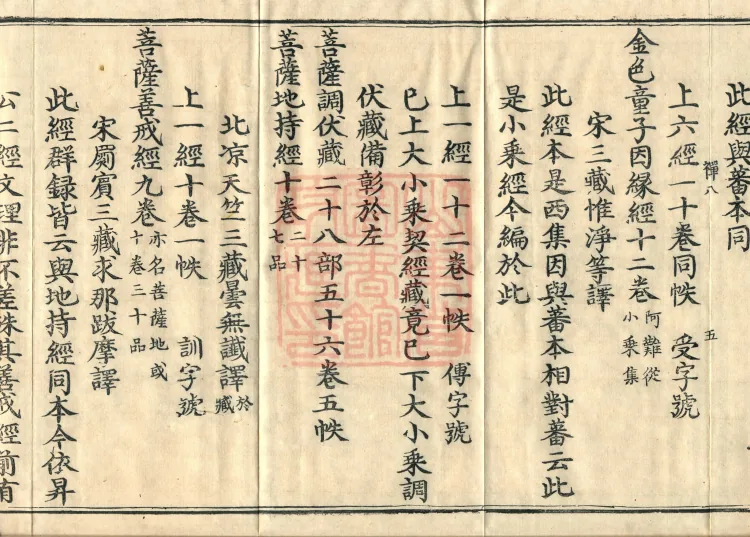 此經與蕃本同
上六經一十卷同帙 受字號
禪八 五
金色童子因緣經十二卷 阿難從小乘集
宋三藏惟淨等譯
此經本是西集因與蕃本相對蕃云此
是小乘經今編於此
上一經一十二卷一帙 傅字號
已上大小乘契經藏竟已下大小乘調
伏藏備彰於左
菩薩調伏藏 二十八部五十六卷五帙
菩薩地持經十卷 二十七品
北凉天竺三藏曇無讖譯 於藏
上一經十卷一帙 訓字號
菩薩善戒經九卷 亦名菩薩地或十卷三十品
宋罽賓三藏求那跋摩譯
此經群録皆云與地持經同本今依昇
公二經文理非不差殊其善戒經前有